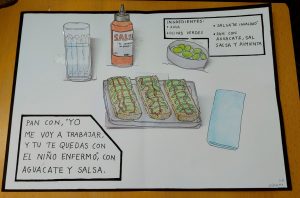 INGREDIENTES:
• AGUA
SALSA
PAN CON, 'YO
ME VOY A TRABAJAR,
Y TU TE QUEDAS CON
EL NIÑO ENFERMO', CON
AGUACATE Y SALSA.
VERDES
• PAN CON
AGUACATE, SAL
SALSA Y PIMIENTA